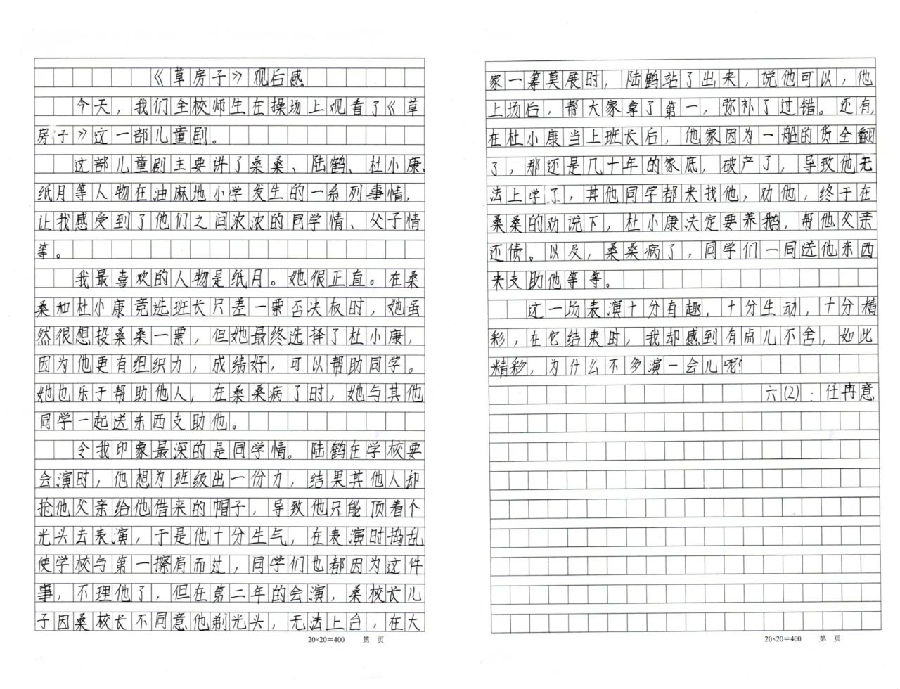 《草房子》观后感
今天，我们全校师生在操场上观看了《草
房子》这一部儿童剧。
这部儿童剧主要讲了桑桑、陆鹤、杜小康、
纸月等人物在油麻地小学发生的一系列事情，
让我感受到了他们之间浓浓的同学情、父子情
等。
我最喜欢的人物是纸月。她很正直。在桑
桑和杜小康竞选班长只差一票否决板时，她虽
然很想投桑桑一票，但她最终选择了杜小康，
因为他更有组织力，成绩好，可以帮助同学。
她也乐于帮助他人，在桑桑病了时，她与其他
同学一起送东西支助他。
令我印象最深的是同学情。陆鹤在学校要
会演时，他想为班级出一份力，结果其他人却
抢他父亲给他借来的帽子，导致他只能顶着个
光头去表演，于是他十分生气，在表演时捣乱
使学校与第一擦肩而过，同学们也都因为这件
事，不理他了，但在第二年的会演，桑校长儿
子因桑校长不同意他剃光头，无法上台，在大
20×20=400 第 页
家一筹莫展时，陆鹤站了出来，说他可以，他
上场后，帮大家拿了第一，弥补了过错。还有，
在杜小康当上班长后，他家因为一船的货全翻
了，那还是几十年的家底，破产了，导致他无
法上学了，其他同学都来找他，劝他，终于在
桑桑的劝说下，杜小康决定要养鹅，帮他父亲
还债。以及，桑桑病了，同学们一同送他东西
来支助他等等。
这一场表演十分有趣，十分生动，十分精
彩，在它结束时，我却感到有点儿不舍，如此
精彩，为什么不多演一会儿呢?
六(2)：任冉意
20×20=400 第 页